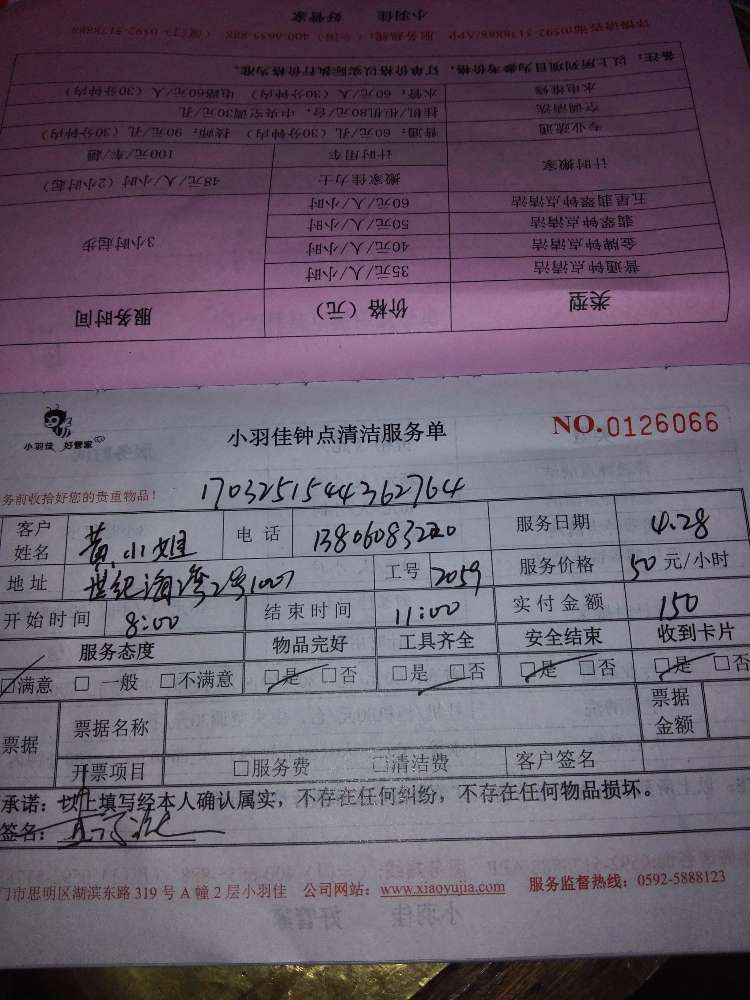 类型 价格（元） 服务时间
普通钟点清洁 35元/人/小时 3小时起步
金牌钟点清洁 40元/人/小时
翡翠钟点清洁 50元/人/小时
五星翡翠钟点清洁 60元/人/小时
计时搬家 搬家佳力士 48元/人/小时（2小时起）
计时用车 100元/车/趟
专业疏通 普通：60元/孔（30分钟内） 技师：90元/孔（30分钟内）
空调清洗 挂机/柜机80元/台，中央空调30元/孔
水电维修 水管：60元/人（30分钟内） 电路60元/人（30分钟内）
备注：以上所列项目为参考价格，订单价格以实际执行价格为准。
小羽佳 好管家
小羽佳 好管家
小羽佳钟点清洁服务单
NO.0126066
务前收拾好您的贵重物品！ 1703251544362764
客户姓名 黄小姐 电话 13806083220 服务日期 4.28
地址 世纪海湾2号1007 工号 2059 服务价格 50 元/小时
开始时间 8:00 结束时间 11:00 实付金额 150
服务态度 物品完好 工具齐全 安全结束 收到卡片
□满意 □一般 □不满意 □是 □否 □是 □否 □是 □否 □是 □否
票据 票据名称 票据金额
开票项目 □服务费 □清洁费 客户签名
承诺：以上填写经本人确认属实，不存在任何纠纷，不存在任何物品损坏。
签名：
门市思明区湖滨东路 319 号 A 幢 2 层小羽佳 公司网站：www.xiaoyujia.com 服务监督热线：0592-5888123